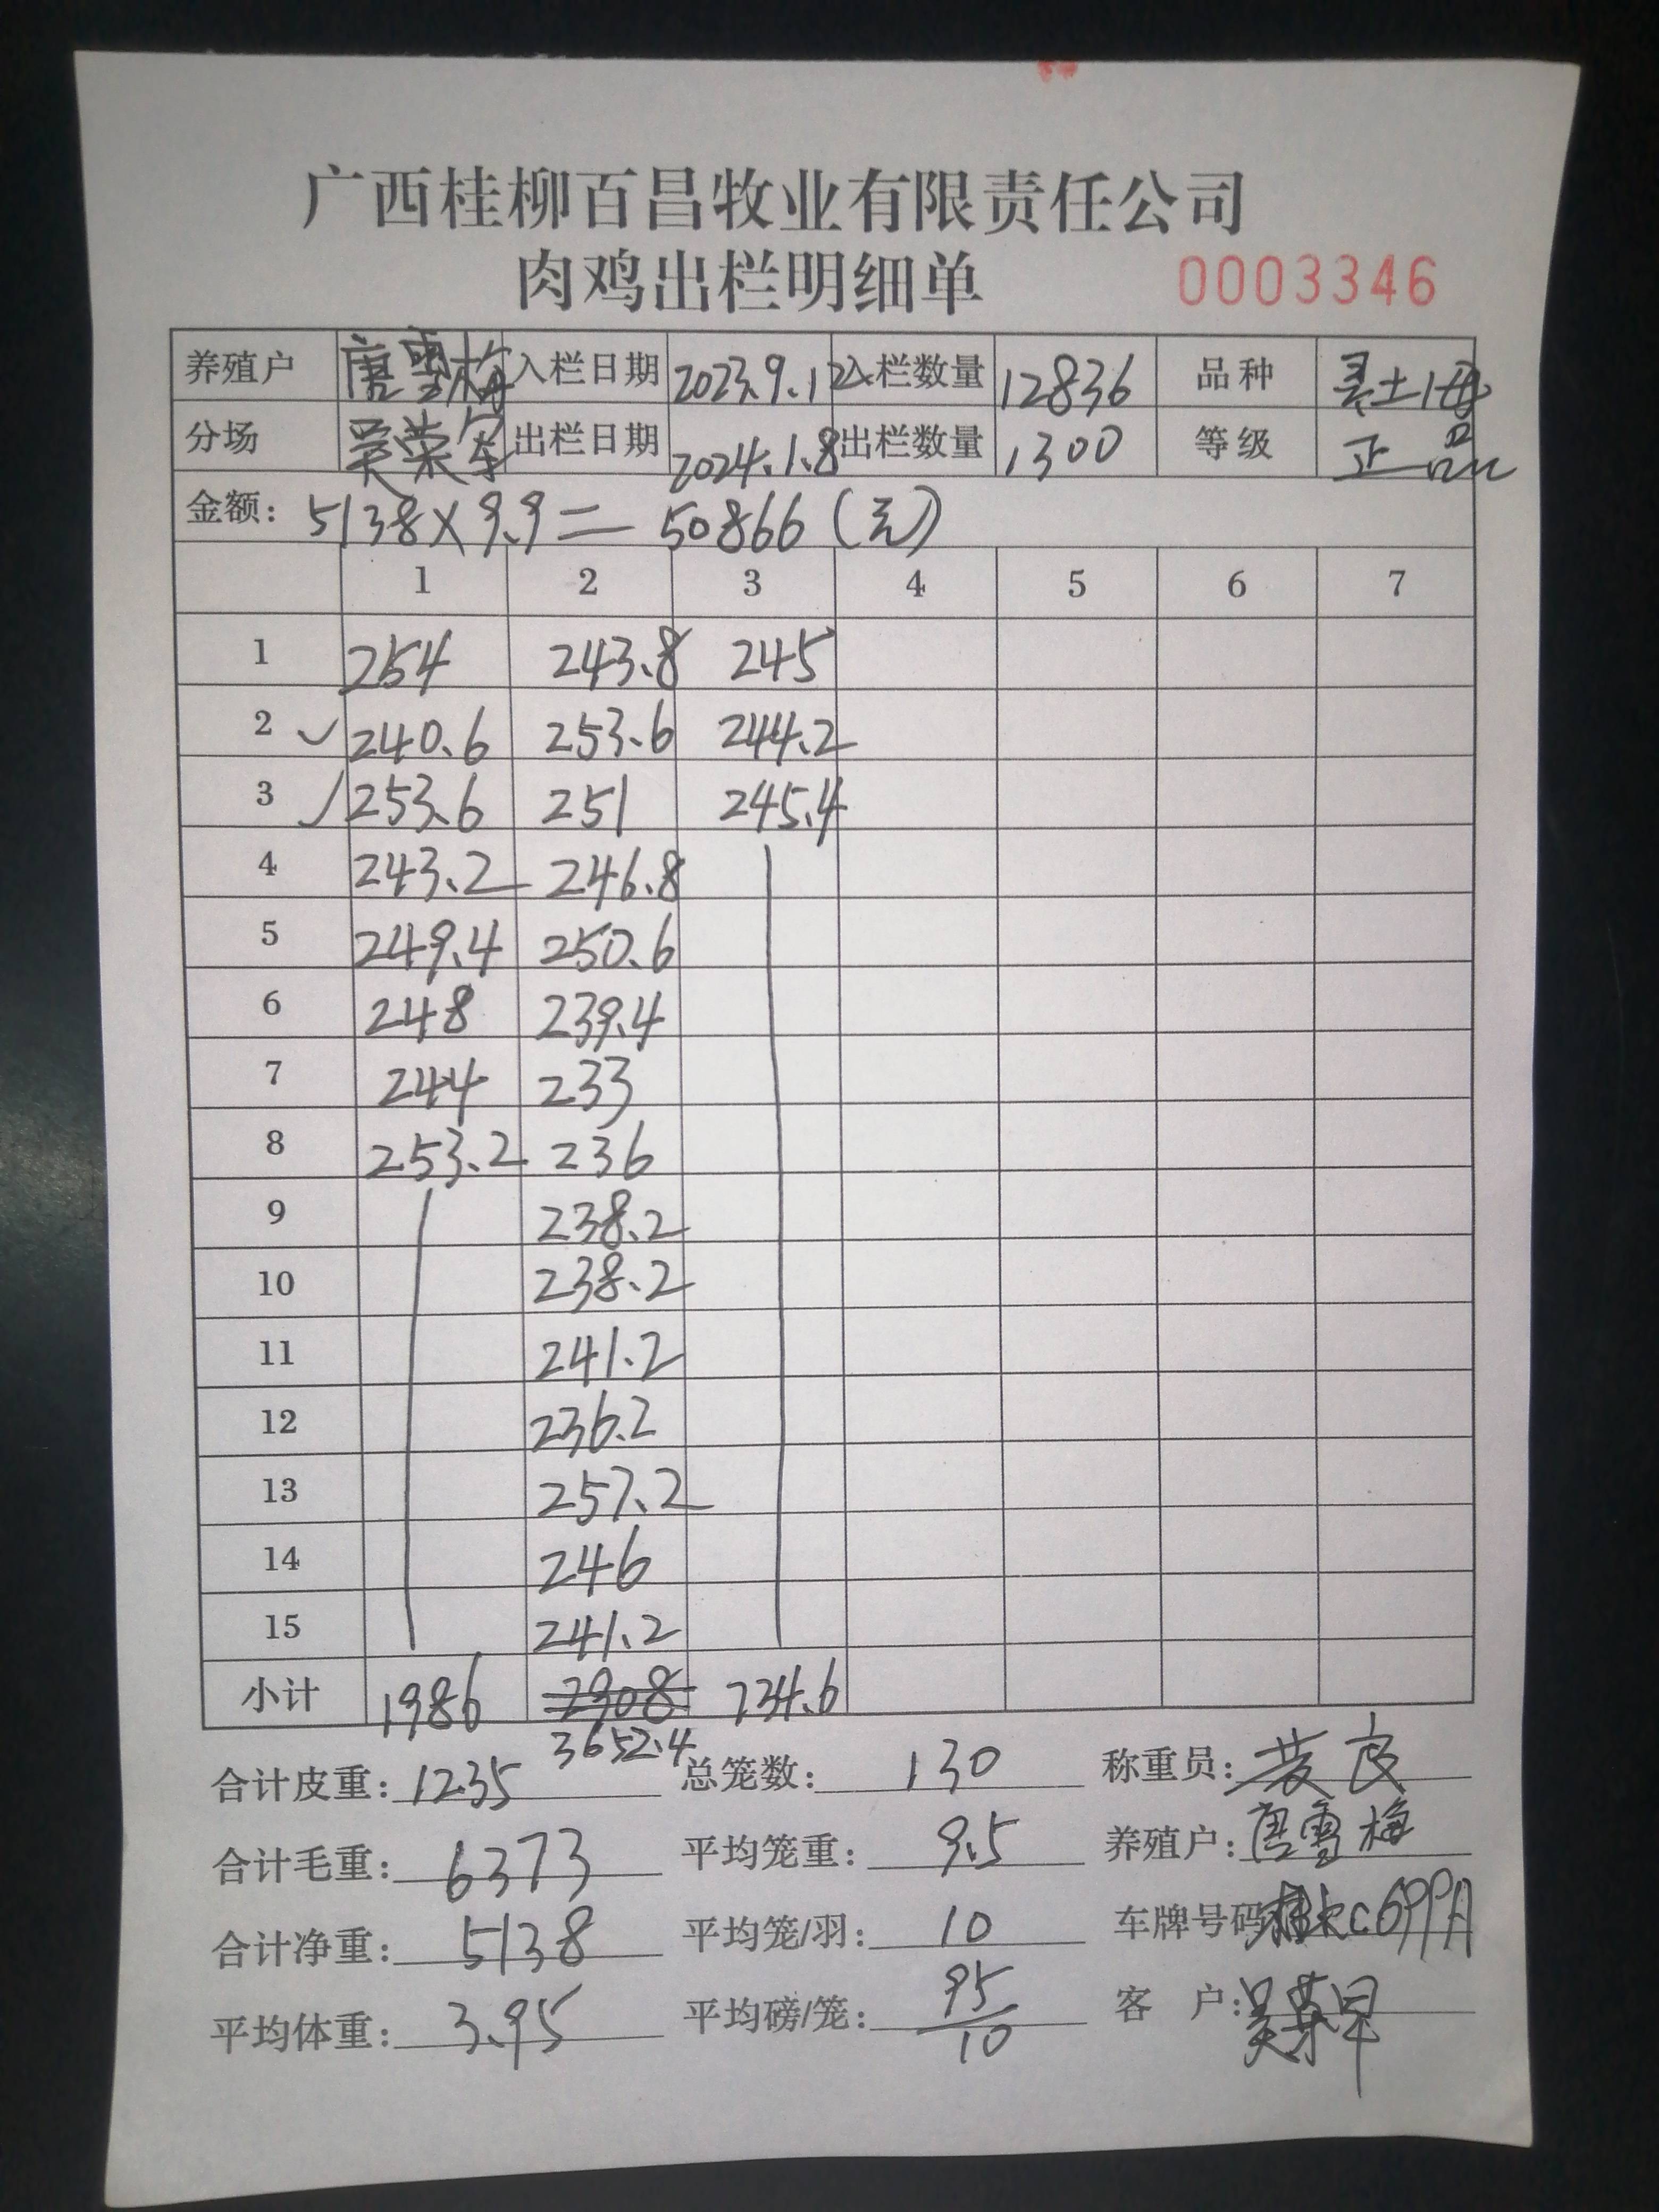 广西桂柳百昌牧业有限责任公司
肉鸡出栏明细单 0003346
养殖户 唐雪梅 入栏日期 2023.9.12 入栏数量 12836 品种 土1母
分场 出栏日期 2024.1.8 出栏数量 1300 等级 正品
金额: 5138×9.9=50866(元)
1 2 3 4 5 6 7
1 254 243.8 245
2 ✓ 240.6 253.6 244.2
3 ✓ 253.6 251 245.4
4 243.2 246.8
5 249.4 250.6
6 248 239.4
7 244 233
8 253.2 236
9 238.2
10 238.2
11 241.2
12 236.2
13 257.2
14 246
15 241.2
小计 1986 2908 734.6
3652.4
合计皮重: 1235 总笼数: 130 称重员:
合计毛重: 6373 平均笼重: 9.5 养殖户: 唐雪梅
合计净重: 5138 平均笼/羽: 10 车牌号码 桂KC699A
平均体重: 3.95 平均磅/笼: 95/10 客户: